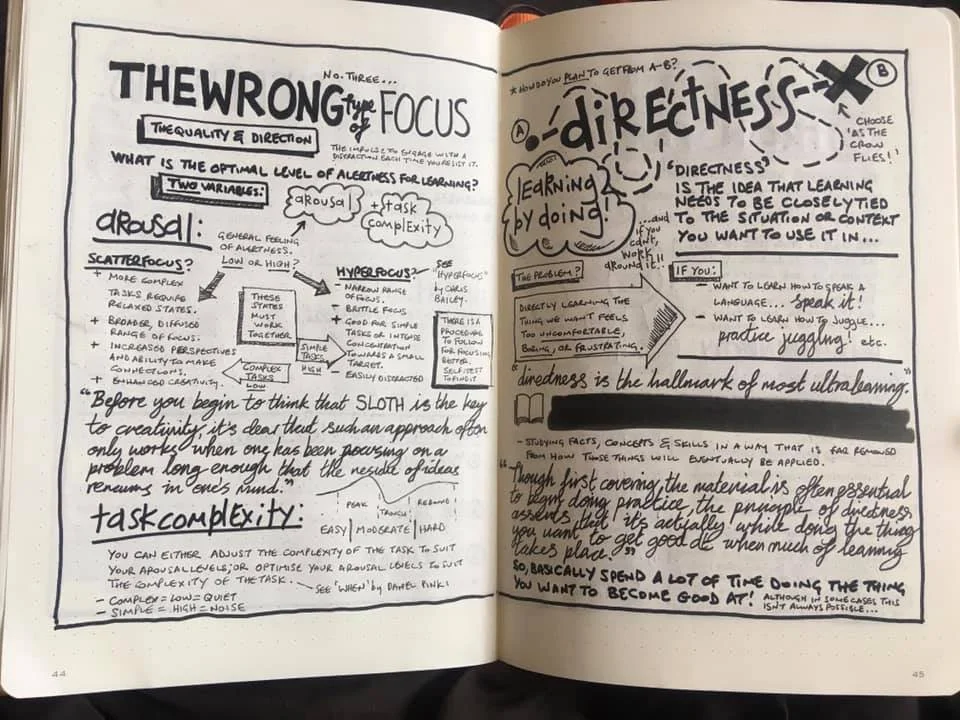 NO. THREE...
THE WRONG type of FOCUS
THE QUALITY & DIRECTION
THE IMPULSE TO ENGAGE WITH A
DISTRACTION EACH TIME YOU RESIST IT.
WHAT IS THE OPTIMAL LEVEL OF ALERTNESS FOR LEARNING?
TWO VARIABLES:
arousal
+ task
complexity
arousal:
GENERAL FEELING
OF ALERTNESS.
LOW OR HIGH?
SCATTERFOCUS?
+ MORE COMPLEX
TASKS REQUIRE
RELAXED STATES.
+ BROADER, DIFFUSED
RANGE OF FOCUS.
+ INCREASED PERSPECTIVES
AND ABILITY TO MAKE
CONNECTIONS.
+ ENHANCED CREATIVITY.
THESE
STATES
MUST
WORK
TOGETHER
SIMPLE
TASKS
HIGH
COMPLEX
TASKS
LOW
HYPERFOCUS?
- NARROW RANGE
OF FOCUS.
- BRITTLE FOCUS
+ GOOD FOR SIMPLE
TASKS OR INTENSE
CONCENTRATION
TOWARDS A SMALL
TARGET.
- EASILY DISTRACTED
SEE
"HYPERFOCUS"
by CHRIS
BAILEY.
THERE IS A
PROCEDURE
TO FOLLOW
FOR FOCUSING
BETTER.
SELF/TEST
TO FIND IT
"Before you begin to think that SLOTH is the key
to creativity, it's clear that such an approach often
only works when one has been focusing on a
problem long enough that the residue of ideas
remains in one's mind."
PEAK
TROUGH
REBOUND
EASY | MODERATE | HARD
task complexity:
YOU CAN EITHER ADJUST THE COMPLEXITY OF THE TASK TO SUIT
YOUR AROUSAL LEVELS; OR OPTIMISE YOUR AROUSAL LEVELS TO SUIT
THE COMPLEXITY OF THE TASK.
SEE 'WHEN' by DANIEL PINK!
- COMPLEX = LOW = QUIET
- SIMPLE = HIGH = NOISE
44
* HOW DO YOU PLAN TO GET FROM A-B?
A
directness
X
B
CHOOSE
'AS THE
CROW
FLIES!'
learning
by doing!
...and
if you
can't,
work
around it..
"DIRECTNESS"
IS THE IDEA THAT LEARNING
NEEDS TO BE CLOSELY TIED
TO THE SITUATION OR CONTEXT
YOU WANT TO USE IT IN...
THE PROBLEM?
DIRECTLY LEARNING THE
THING WE WANT FEELS
TOO UNCOMFORTABLE,
BORING, OR FRUSTRATING.
IF YOU:
- WANT TO LEARN HOW TO SPEAK A
LANGUAGE... speak it!
- WANT TO LEARN HOW TO JUGGLE...
practice juggling! etc.
"directness is the hallmark of most ultralearning."
- STUDYING FACTS, CONCEPTS & SKILLS IN A WAY THAT IS FAR REMOVED
FROM HOW THOSE THINGS WILL EVENTUALLY BE APPLIED.
"Though first covering the material is often essential
to begin doing practice, the principle of directness
asserts that it's actually while doing the thing
you want to get good at when much of learning
takes place."
SO, BASICALLY SPEND A LOT OF TIME DOING THE THING
YOU WANT TO BECOME GOOD AT!
ALTHOUGH IN SOME CASES THIS
ISN'T ALWAYS POSSIBLE...
45